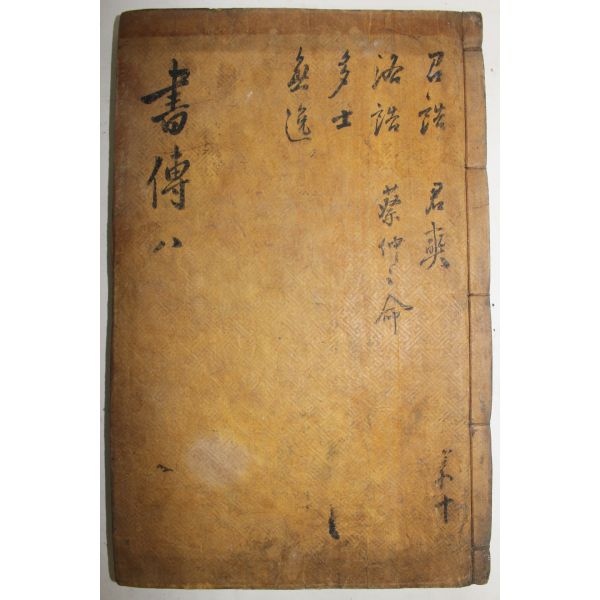 書傳 八
召誥 君奭
洛誥 蔡仲之命
多士
無逸
共十